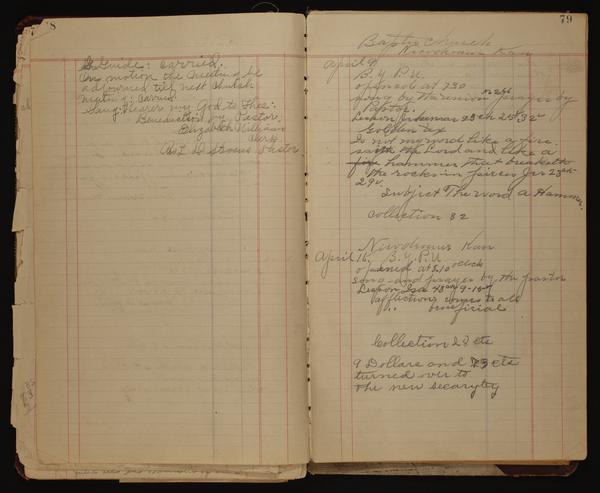 78
to Guide: carried.
On motion the meeting be
adjourned till next Church
meeting: carried
sang: Nearer my God to Thee:
Benediction by Pastor.
Elizabeth Williams
Clerk
Pastor
79
Baptis Church
Nicodemus Kan
April 9
B. Y. P. U.
opened at 730
song by the union No 246 prayer by
Pastor.
Lesson Jeremiah 23 ch
Golden tex
Is not my word like a fire
saith the Lord and like a
fire hammer that breaketh
the rocks in peices Jer 23 ch
29 v
Subject The word a Hammer.
Collection 32
Nicodemus Kan
April 16, B. Y. P. U
opened at 8.10 oclock
song and prayer by the pastor
Lesson Isa
afflictions comes to all
beneficial
Collection 28 cts
9 Dollars and 73 cts
turned over to
the new secarytey